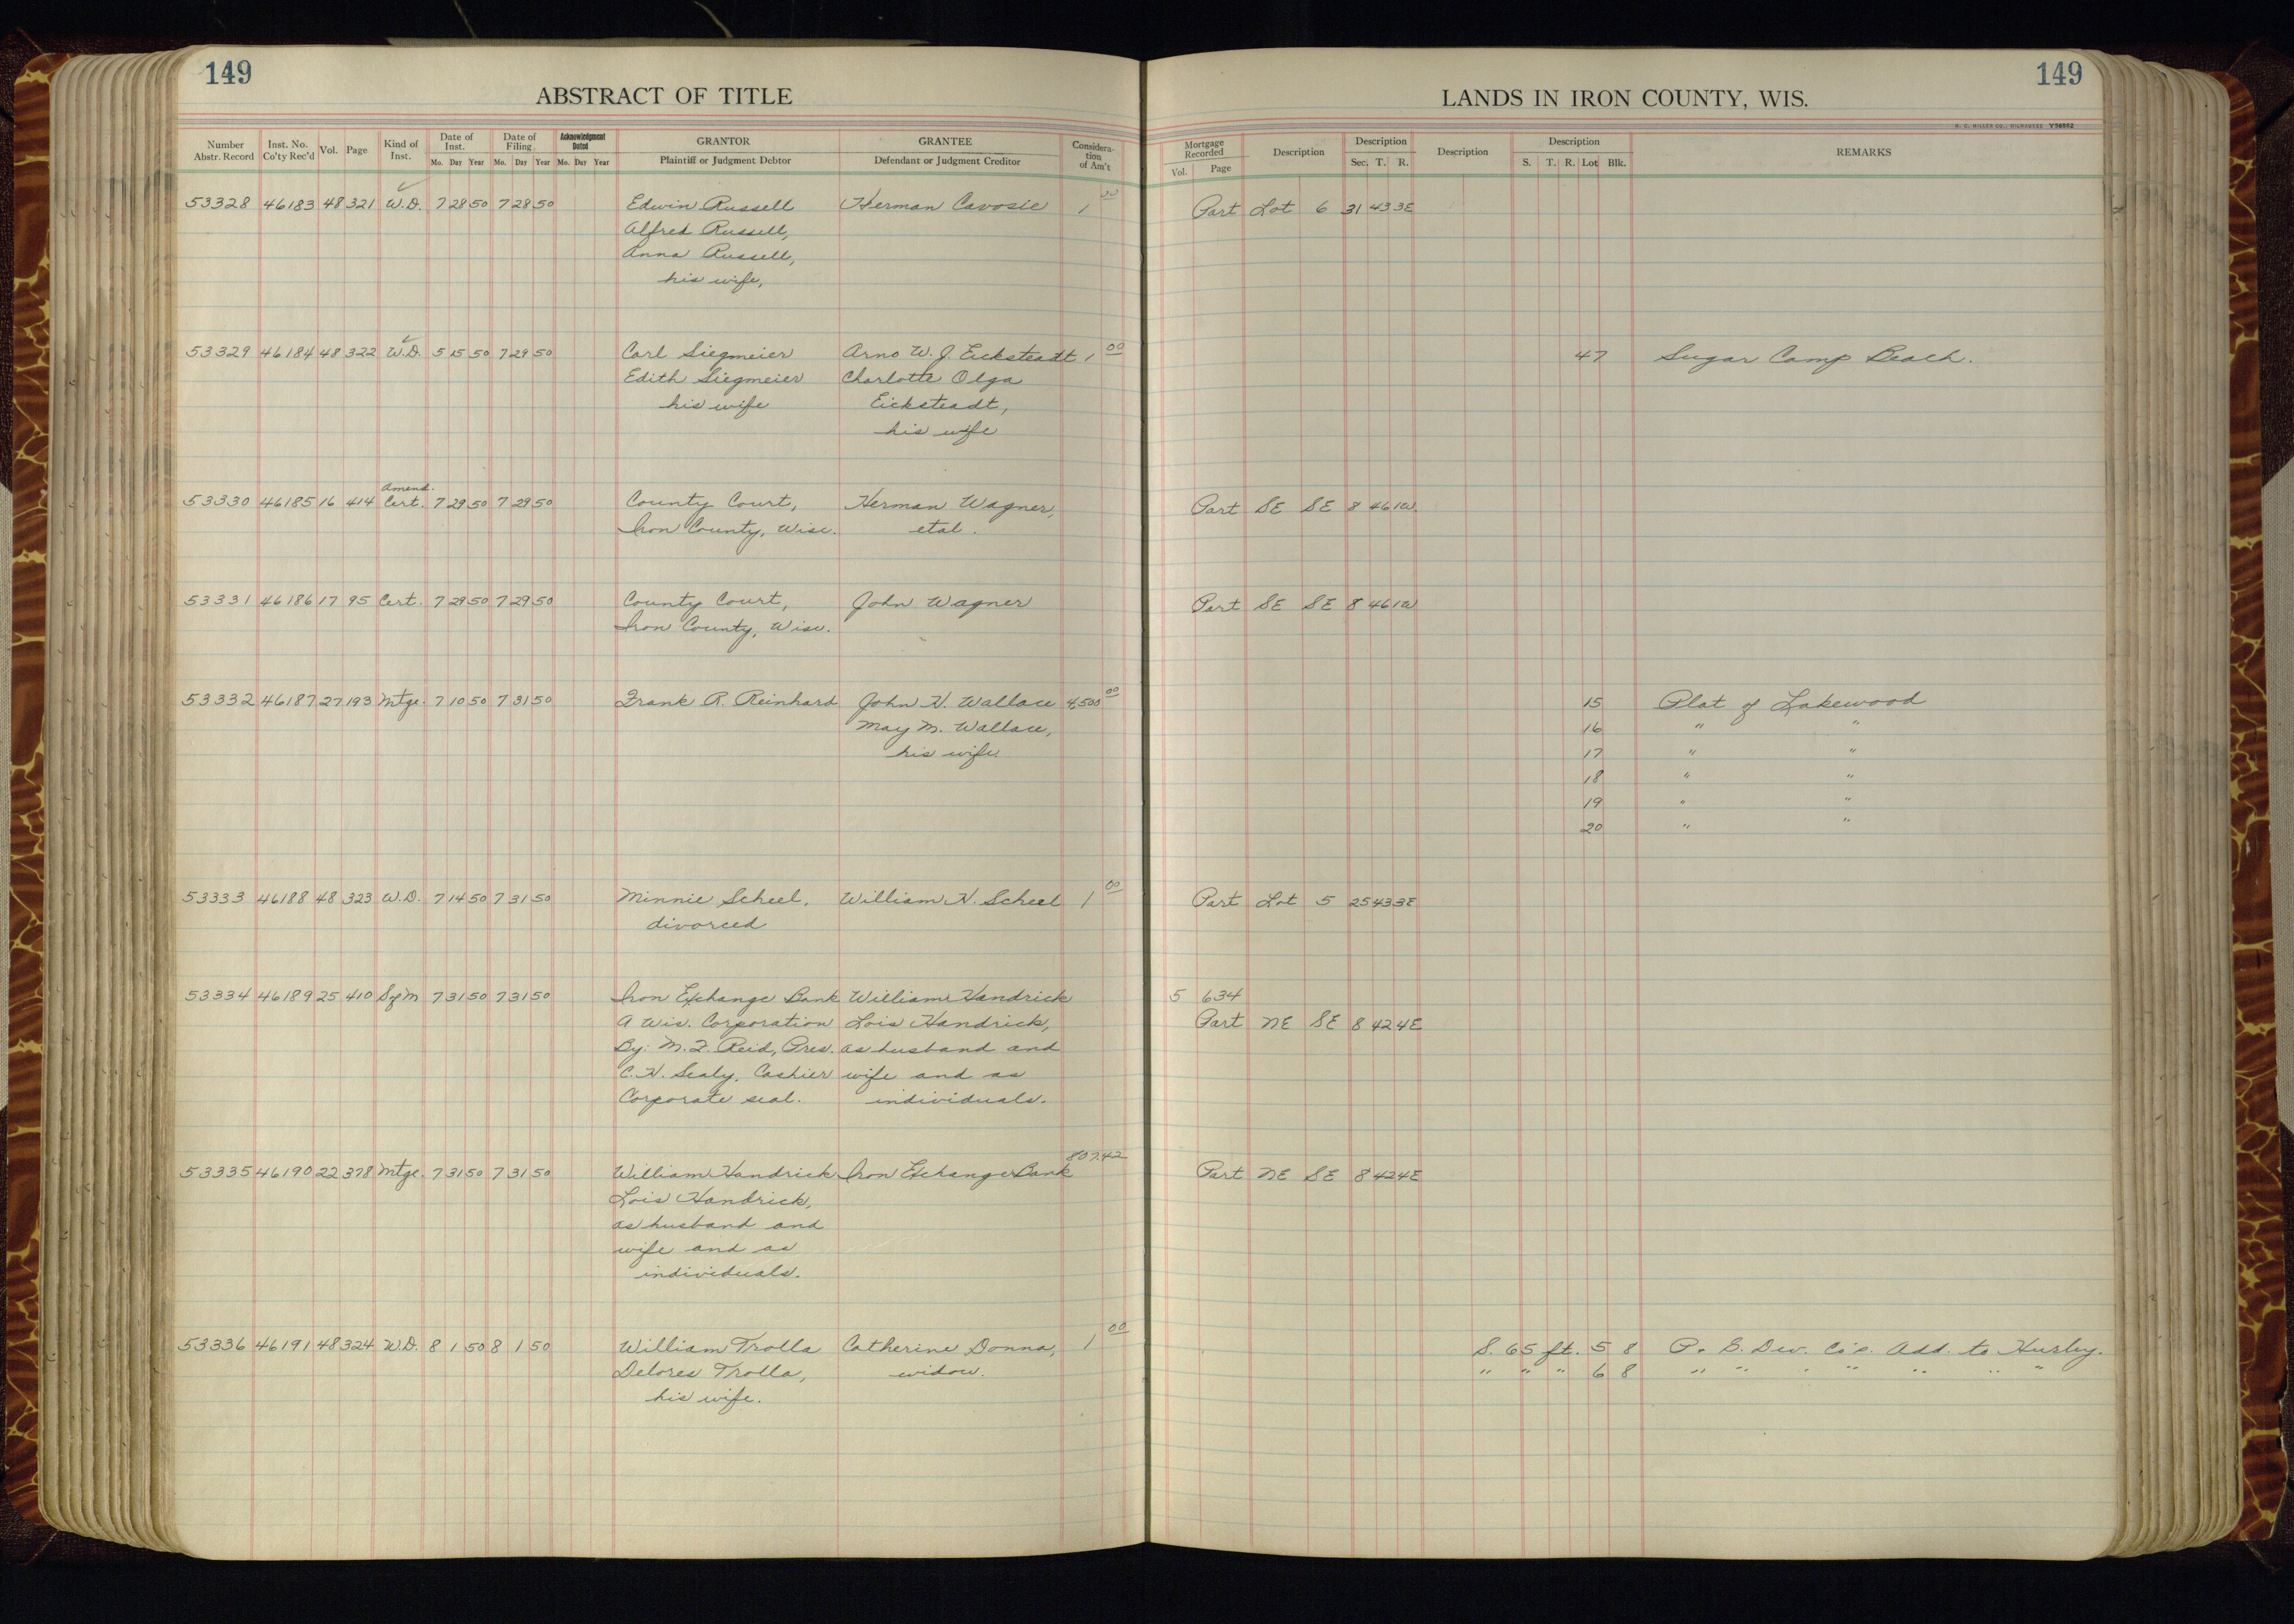 149
ABSTRACT OF TITLE
LANDS IN IRON COUNTY, WIS.
149
H. C. MILLER CO., MILWAUKEE V56662
Number Abstr. Record Inst. No. Co'ty Rec'd Vol. Page Kind of Inst. Date of Inst. Mo. Day Year Date of Filing Mo. Day Year Acknowledgment Dated Mo. Day Year GRANTOR Plaintiff or Judgment Debtor GRANTEE Defendant or Judgment Creditor Considera-tion of Am't Mortgage Recorded Vol. Page Description Description Sec. T. R. Description Description S. T. R. Lot Blk. REMARKS
53328 46183 48 321 W.D. 7 28 50 7 28 50 Edwin Russell Herman Cavosie 1 00 Part Lot 6 31 43 3E
Alfred Russell,
Anna Russell,
his wife,
53329 46184 48 322 W.D. 5 15 50 7 29 50 Carl Siegmeier Arno W. J. Eicksteadt 1 00 47 Sugar Camp Beach.
Edith Siegmeier Charlotte Olga
his wife Eicksteadt,
his wife
Amend.
53330 46185 16 414 Cert. 7 29 50 7 29 50 County Court, Herman Wagner, Part SE SE 8 46 1W
Iron County, Wisc. etal.
53331 46186 17 95 Cert. 7 29 50 7 29 50 County Court, John Wagner Part SE SE 8 46 1W
Iron County, Wisc.
53332 46187 27 193 Mtge. 7 10 50 7 31 50 Frank R. Reinhard John H. Wallace 4,500 00 15 Plat of Lakewood
May M. Wallace, 16 " "
his wife. 17 " "
18 " "
19 " "
20 " "
53333 46188 48 323 W.D. 7 14 50 7 31 50 Minnie Scheel, William H. Scheel 1 00 Part Lot 5 25 43 3E
divorced
53334 46189 25 410 7 31 50 7 31 50 Iron Exchange Bank William Handrick 5 634
A Wis. Corporation Lois Handrick, Part NE SE 8 42 4E
By: M. F. Reid, Pres. as husband and
C. H. Sealy, Cashier wife and as
Corporate seal. individuals.
53335 46190 22 378 Mtge. 7 31 50 7 31 50 William Handrick Iron Exchange Bank 807.42 Part NE SE 8 42 4E
Lois Handrick,
as husband and
wife and as
individuals.
53336 46191 48 324 W.D. 8 1 50 8 1 50 William Trolla Catherine Donna, 1 00 S. 65 ft. 5 8 P. B. Dev. Co's. Add. to Hurley.
Delores Trolla, widow. " " " 6 8 " " " " " " "
his wife.